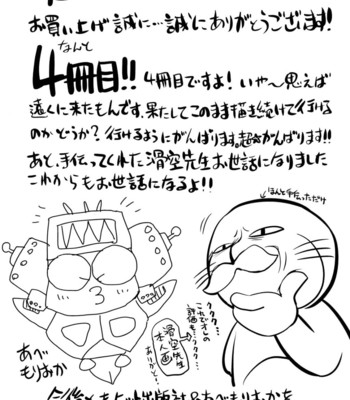 お買い上げ誠に…誠にありがとうございます!
なんと
4冊目!!
4冊目ですよ!いや〜思えば
遠くに来たもんです。果たしてこのまま描き続けて行ける
のかどうか?行けるようにがんばります。超がんばります!!
あと、手伝ってくれた滑空先生お世話になりました
これからもお世話になるよ!!
ほんと手伝っただけ
ククク…
これでオレの
評価も…
ククク…
滑空先生
本人画
ありがと〜
あべ
もりおか